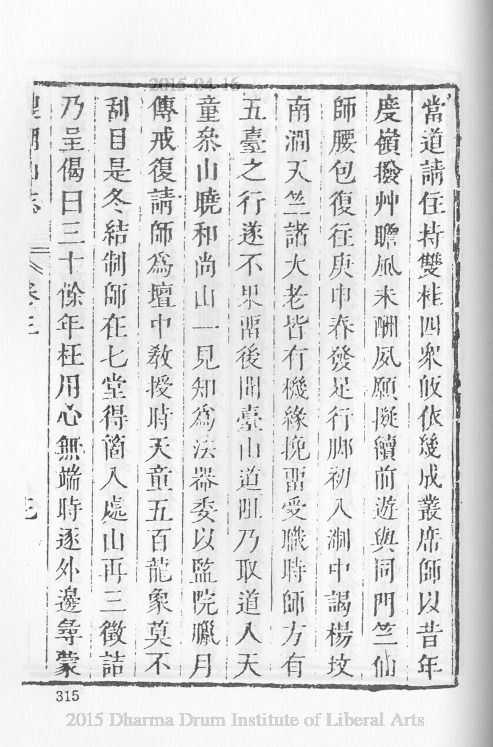 2015-04-16
當道請住持雙桂四衆皈依幾成叢席師以昔年
度嶺撥艸瞻風未酬夙願擬續前遊與同門竺仙
師腰包復往庚申春發足行脚初入澗中謁楊坟
南澗天竺諸大老皆有機緣挽畱受職時師方有
五臺之行遂不果畱後聞臺山道阻乃取道入天
童叅山曉和尚山一見知爲法器委以監院臘月
傳戒復請師爲壇中教授時天童五百龍象莫不
刮目是冬結制師在七堂得箇入處山再三徵詰
乃呈偈曰三十餘年枉用心無端時逐外邊尋蒙
山志 卷三
315
2015 Dharma Drum Institute of Liberal Arts